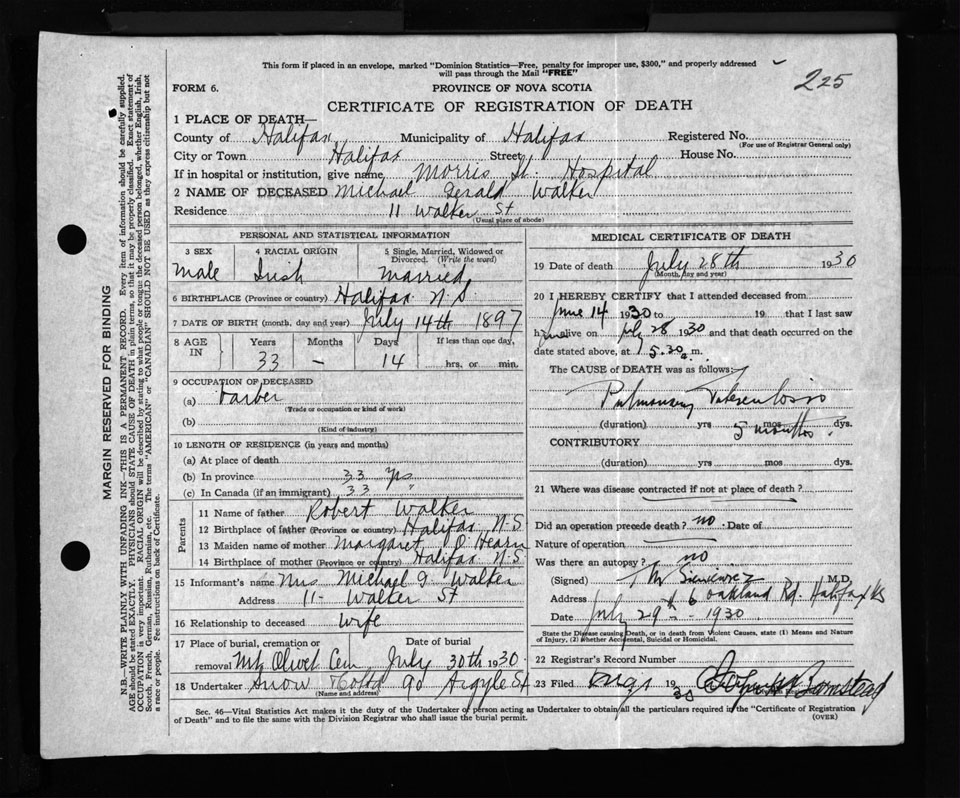 This form if placed in an envelope, marked "Dominion Statistics—Free, penalty for improper use, $300," and properly addressed
will pass through the Mail "FREE"
225
FORM 6.
PROVINCE OF NOVA SCOTIA
CERTIFICATE OF REGISTRATION OF DEATH
1 PLACE OF DEATH—
County of Halifax Municipality of Halifax Registered No.
(For use of Registrar General only)
City or Town Halifax Street House No.
If in hospital or institution, give name Morris St. Hospital
2 NAME OF DECEASED Michael Gerald Walker
Residence 11 Walker St
(Usual place of abode)
PERSONAL AND STATISTICAL INFORMATION
3 SEX 4 RACIAL ORIGIN 5 Single, Married, Widowed or
Divorced. (Write the word)
Male Irish Married
6 BIRTHPLACE (Province or country) Halifax N.S.
7 DATE OF BIRTH (month, day and year) July 14th 1897
8 AGE IN Years Months Days If less than one day,
33 – 14 hrs. or min.
9 OCCUPATION OF DECEASED
(a) Barber
(Trade or occupation or kind of work)
(b)
(Kind of industry)
10 LENGTH OF RESIDENCE (in years and months)
(a) At place of death
(b) In province 33 yrs
(c) In Canada (if an immigrant) 33 "
Parents
11 Name of father Robert Walker
12 Birthplace of father (Province or country) Halifax N-S
13 Maiden name of mother Margaret O'Hearn
14 Birthplace of mother (Province or country) Halifax N.S.
15 Informant's name Mrs Michael G. Walker
Address 11- Walker St
16 Relationship to deceased Wife
17 Place of burial, cremation or Date of burial
removal Mt Olivet Cem July 30th 1930
18 Undertaker Snow 90 Argyle St
(Name and address)
MEDICAL CERTIFICATE OF DEATH
19 Date of death July 28th 1930
(Month, day and year)
20 I HEREBY CERTIFY that I attended deceased from
June 14 1930 to 19 that I last saw
h alive on July 28 1930 and that death occurred on
date stated above, at 5.30 a.m.
The CAUSE of DEATH was as follows:
Pulmonary Tuberculosis
(duration) yrs 5 months mos dys.
CONTRIBUTORY
(duration) yrs mos dys.
21 Where was disease contracted if not at place of death?
Did an operation precede death? no Date of
Nature of operation
Was there an autopsy? no
(Signed) M Sieniewicz M.D.
Address 6 Oakland Rd. Halifax NS
Date July 29th 1930
State the Disease causing Death, or in death from Violent Causes, state (1) Means and Nature
of Injury, (2) whether Accidental, Suicidal or Homicidal.
22 Registrar's Record Number
23 Filed Aug 1 1930
Sec. 46—Vital Statistics Act makes it the duty of the Undertaker or person acting as Undertaker to obtain all the particulars required in the "Certificate of Registration
of Death" and to file the same with the Division Registrar who shall issue the burial permit.
(OVER)
MARGIN RESERVED FOR BINDING
N.B.—WRITE PLAINLY WITH UNFADING INK—THIS IS A PERMANENT RECORD. Every item of information should be carefully supplied.
AGE should be stated EXACTLY. PHYSICIANS should STATE CAUSE OF DEATH in plain terms, so that it may be properly classified. Exact statement of
OCCUPATION is very important. RACIAL ORIGIN will be described by stating to what people or tongue the deceased person belonged, whether English, Irish,
Scotch, French, German, Russian, Ruthenian, etc. The terms "AMERICAN" or "CANADIAN" SHOULD NOT BE USED as they express citizenship but not
a race or people. See instructions on back of Certificate.